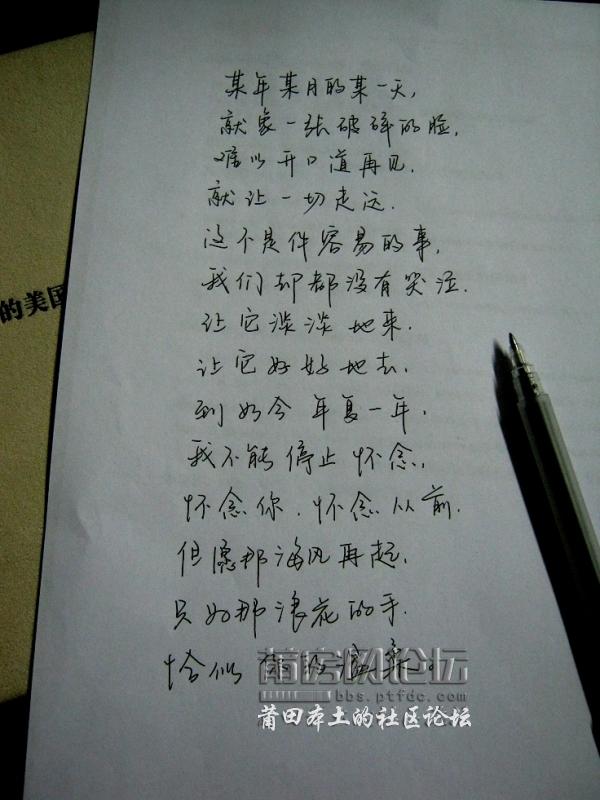 某年某月的某一天,
就象一张破碎的脸.
难以开口道再见.
就让一切走远.
这不是件容易的事,
我们却都没有哭泣.
让它淡淡地来.
让它好好地去.
到如今年复一年.
我不能停止怀念.
怀念你.怀念从前.
但愿那海风再起.
只如那浪花的手.
恰似你的温柔。
的美国
莆房网论坛
bbs.ptfdc.com
莆田本土的社区论坛